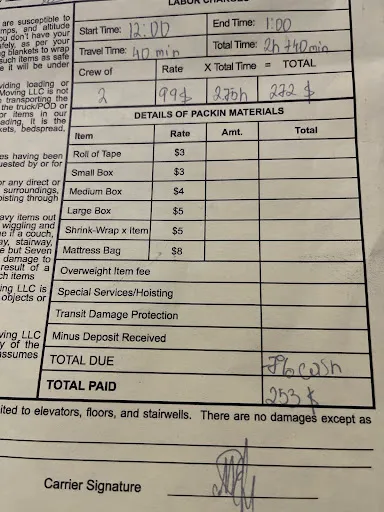 LABOR CHARGES
are susceptible to
mps, and altitude
ou don't have your
afely, as per your
g blankets to wrap
such items as safe
e it will be under
Start Time: 12:00 End Time: 1:00
Travel Time: 40 min Total Time: 2h 40min
Crew of Rate X Total Time = TOTAL
2 99$ 2.75h 272 $
viding loading or
Moving LLC is not
e transporting the
the truck/POD or
or items in our
ading, it is the
kets, bedspread,
DETAILS OF PACKIN MATERIALS
Item Rate Amt. Total
Roll of Tape $3
Small Box $3
Medium Box $4
Large Box $5
Shrink-Wrap x Item $5
Mattress Bag $8
Overweight Item fee
Special Services/Hoisting
Transit Damage Protection
Minus Deposit Received
TOTAL DUE 7% cash
TOTAL PAID 253 $
es having been
uested by or for
or any direct or
surroundings,
oisting through
avy items out
wiggling and
e if a couch,
ay, stairway,
e but Seven
damage to
result of a
ch items
ing LLC is
objects or
ving LLC
y of the
assumes
ited to elevators, floors, and stairwells. There are no damages except as
Carrier Signature